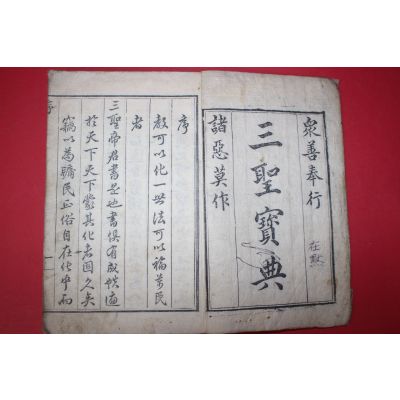 衆善奉行
三聖寶典
諸惡莫作
序
教可以化一世法可以福萬民
者
三聖帝君書是也書俱有成帙遍
於天下天下蒙其化者固久矣
竊以為牖民正俗自在化中而